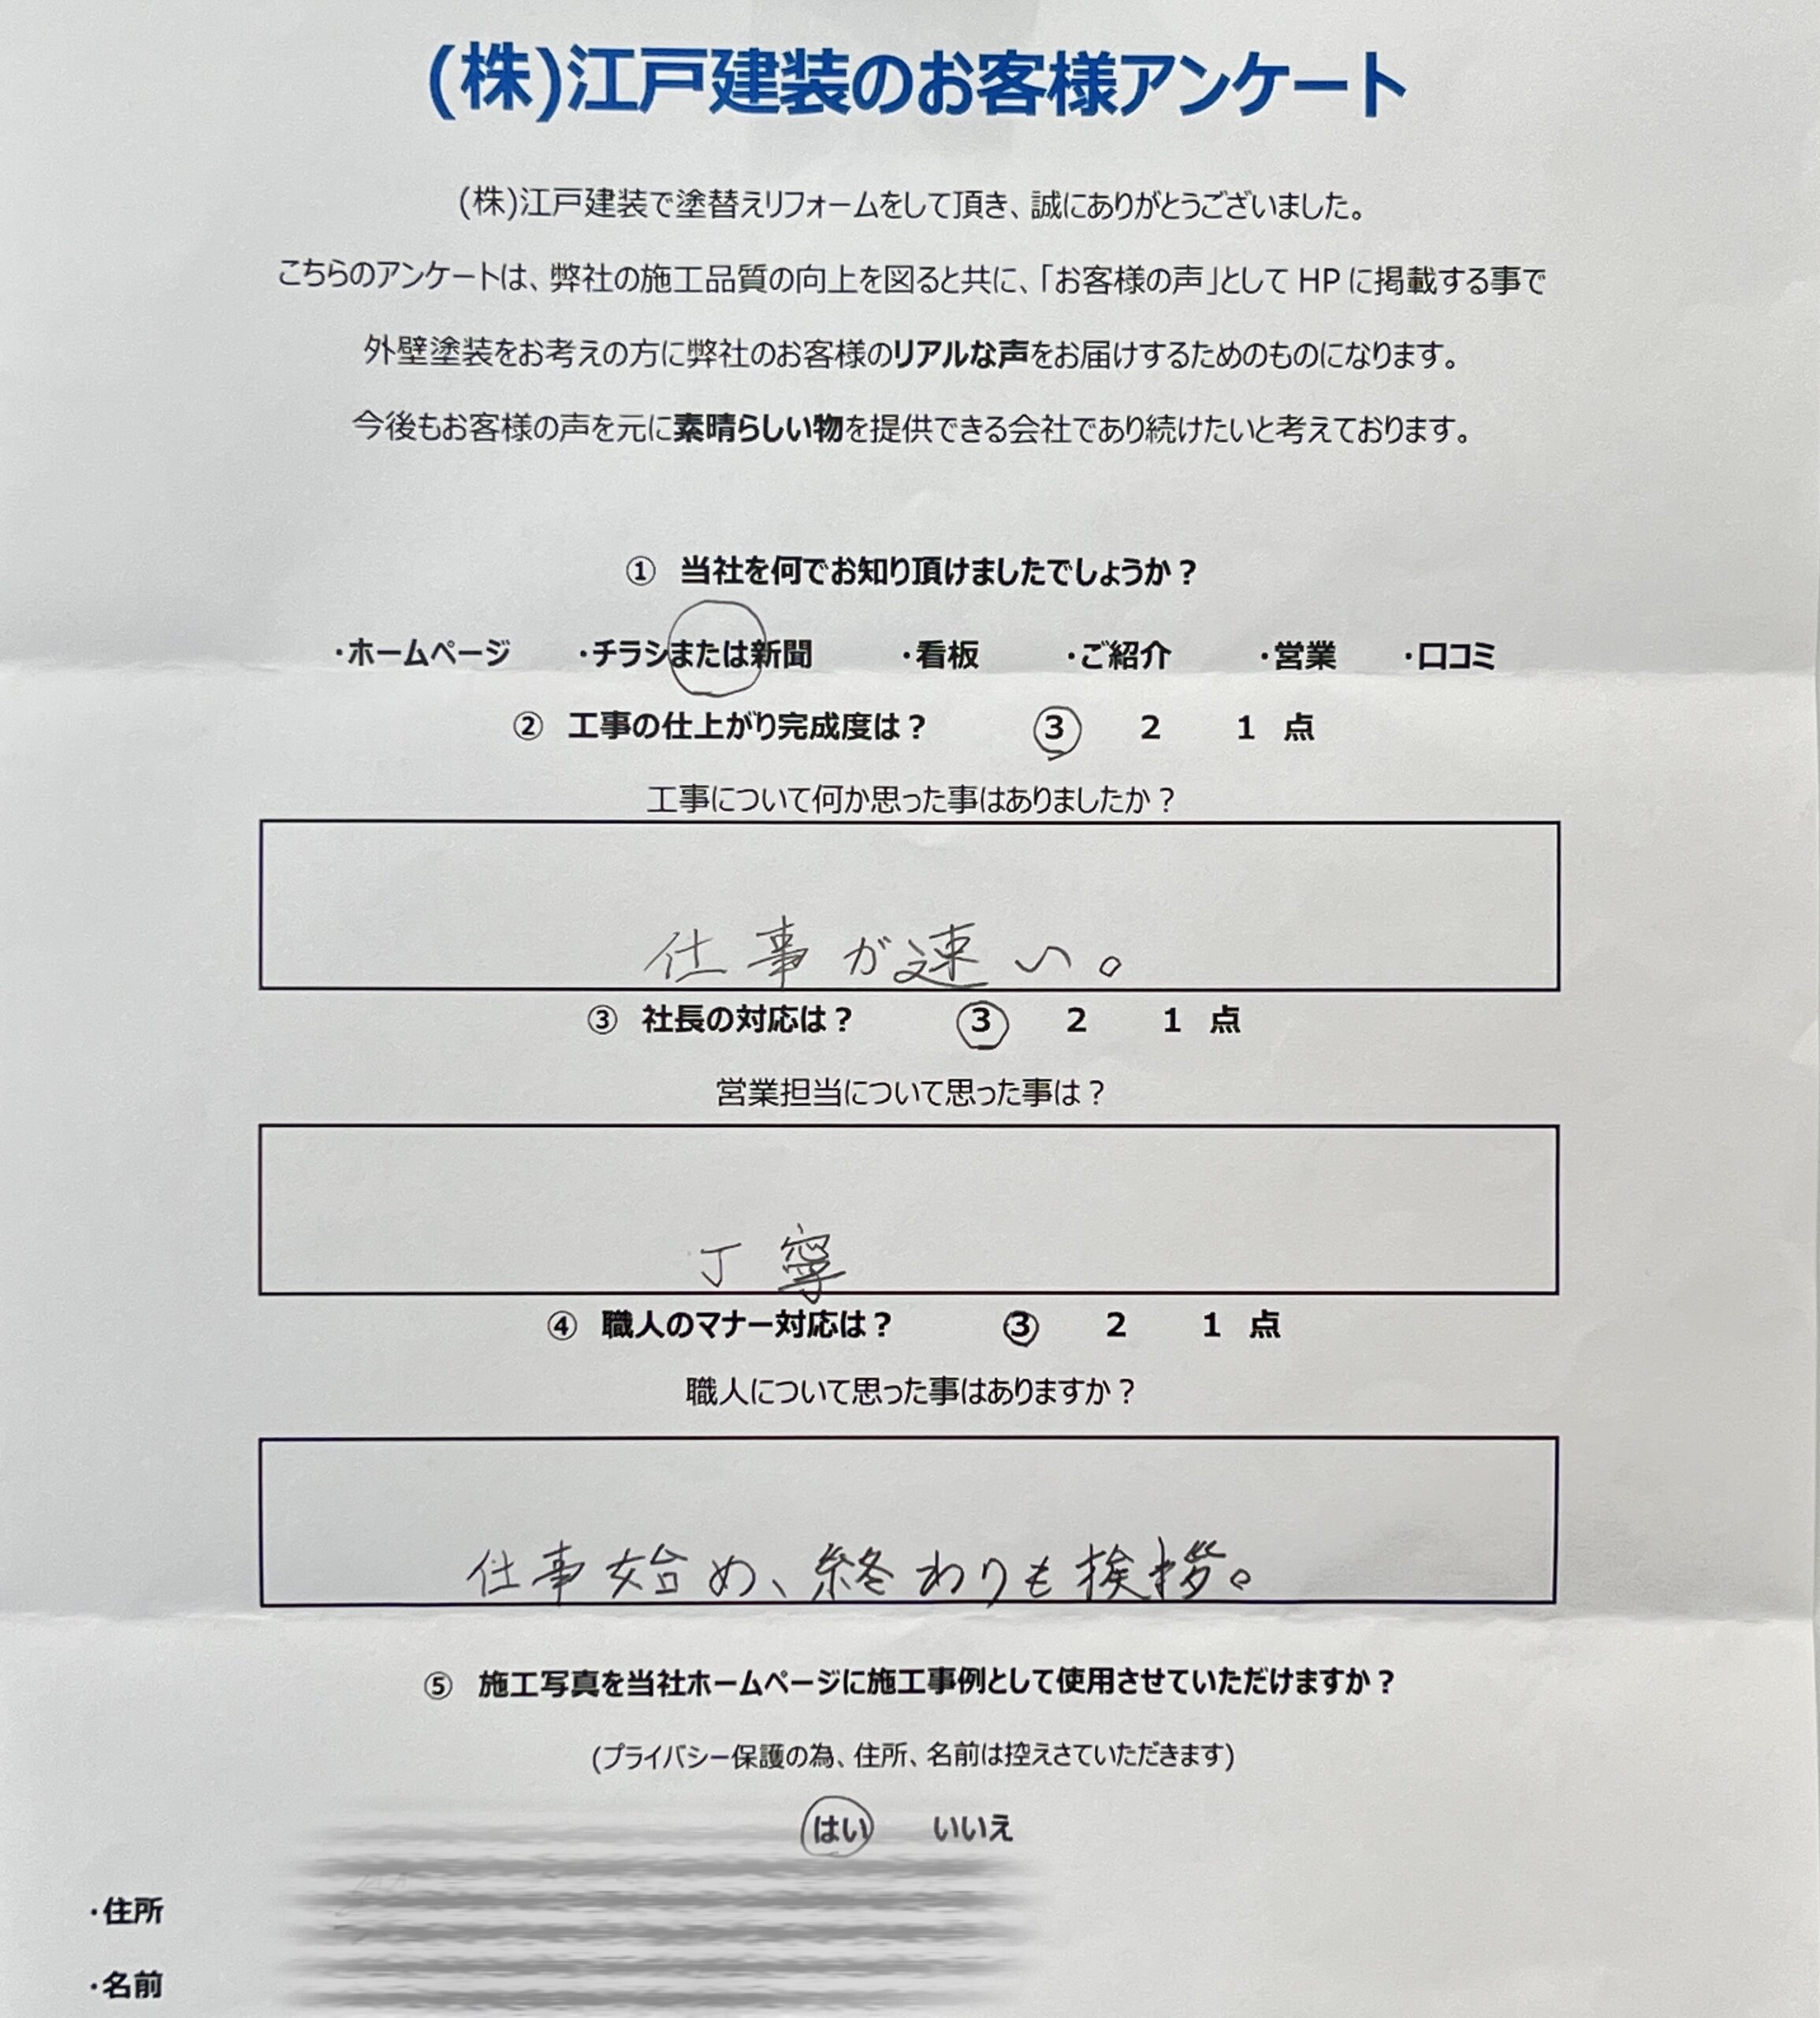 (株)江戸建装のお客様アンケート
(株)江戸建装で塗替えリフォームをして頂き、誠にありがとうございました。
こちらのアンケートは、弊社の施工品質の向上を図ると共に、「お客様の声」として HP に掲載する事で
外壁塗装をお考えの方に弊社のお客様のリアルな声をお届けするためのものになります。
今後もお客様の声を元に素晴らしい物を提供できる会社であり続けたいと考えております。
① 当社を何でお知り頂けましたでしょうか？
・ホームページ ・チラシまたは新聞 ・看板 ・ご紹介 ・営業 ・口コミ
② 工事の仕上がり完成度は？ 3 2 1 点
工事について何か思った事はありましたか？
仕事が速い。
③ 社長の対応は？ 3 2 1 点
営業担当について思った事は？
丁寧
④ 職人のマナー対応は？ 3 2 1 点
職人について思った事はありますか？
仕事始め、終わりも挨拶。
⑤ 施工写真を当社ホームページに施工事例として使用させていただけますか？
(プライバシー保護の為、住所、名前は控えさていただきます)
はい いいえ
・住所
・名前